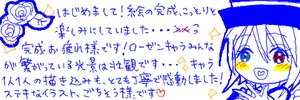 はじめまして！絵の完成、ことりと
楽しみにしていました・・・
完成お疲れ様です！ローゼンキャラみんな
が繋がっている光景は壮観です・・・キャラ
1人1人の描き込みも、とても丁寧で感動しました！
ステキなイラスト、ごちそう様です♡